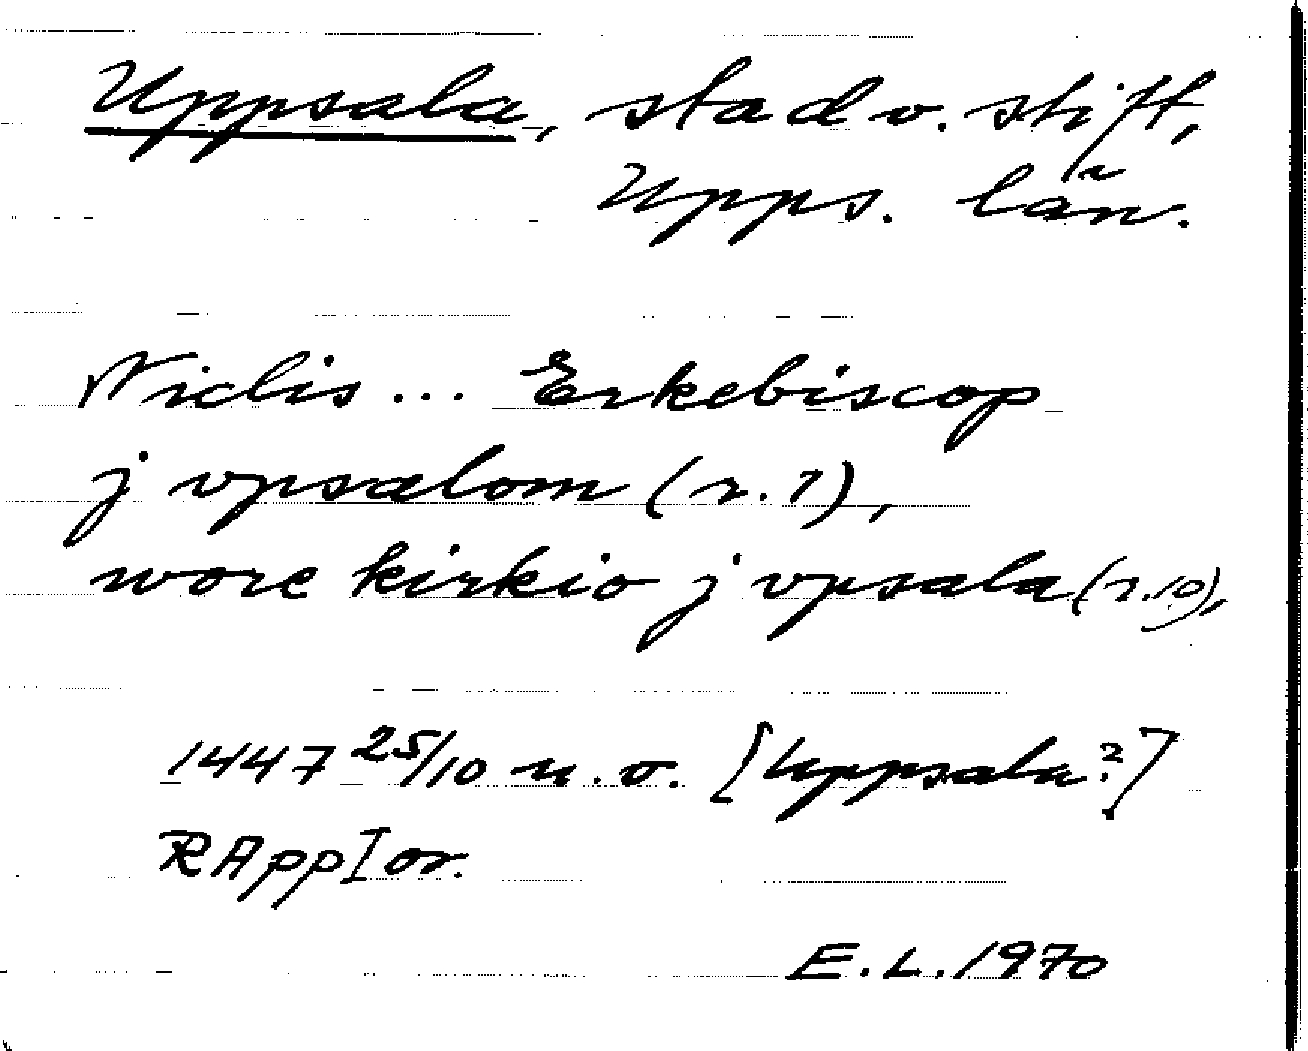 Uppsala, stad o. stift,
Upps. län.
Niclis ... Erkebiscop
j vpsalom (r. 1),
wore kirkio j vpsala (r. 10),
1447 25/10 u. o. [Uppsala?]
RAppI or.
E. L. 1970